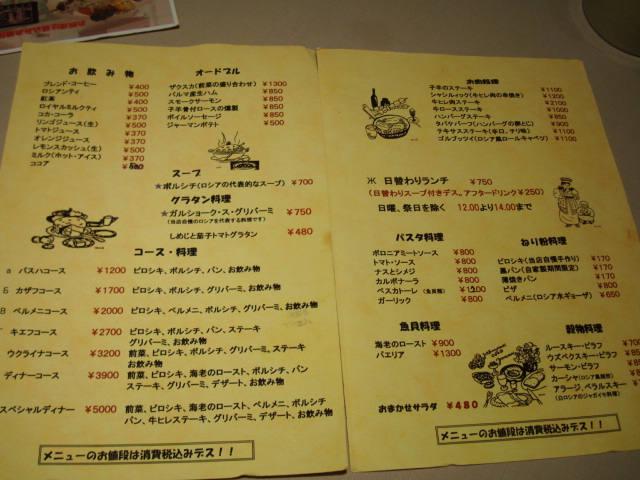 お飲み物
ブレンド・コーヒー ¥400
ロシアンティ ¥500
紅茶 ¥400
ロイヤルミルクティ ¥500
コカ・コーラ ¥370
リンゴジュース(生) ¥500
トマトジュース ¥370
オレンジジュース ¥370
レモンスカッシュ(生) ¥500
ミルク(ホット・アイス) ¥370
ココア
オードブル
ザクスカ(前菜の盛り合わせ) ¥1300
パルマ産生ハム ¥850
スモークサーモン ¥850
子羊骨付ロースの燻製 ¥850
ボイルソーセージ ¥850
ジャーマンポテト ¥500
スープ
★ボルシチ(ロシアの代表的なスープ) ¥700
グラタン料理
★ガルショーク・ス・グリバーミ ¥750
(当店自慢のロシアを代表する料理です)
しめじと茄子トマトグラタン ¥480
コース・料理
а パスハコース ¥1200 ピロシキ、ボルシチ、パン、お飲み物
Б カザフコース ¥1700 ピロシキ、ボルシチ、グリバーミ、お飲み物
В ペルメニコース ¥2000 ピロシキ、ペルメニ、ボルシチ、グリバーミ、お飲み物
キエフコース ¥2700 ピロシキ、ボルシチ、パン、ステーキ
グリバーミ、お飲み物
ウクライナコース ¥3200 前菜、ピロシキ、ボルシチ、グリバーミ、ステーキ
お飲み物
ディナーコース ¥3900 前菜、ピロシキ、海老のロースト、ボルシチ、パン
ステーキ、グリバーミ、デザート、お飲み物
スペシャルディナー ¥5000 前菜、ピロシキ、海老のロースト、ペルメニ、ボルシチ
パン、牛ヒレステーキ、グリバーミ、デザート、お飲み物
メニューのお値段は消費税込みデス!!
お肉料理
子羊のステーキ ¥1100
シャシルィック(牛ヒレ肉の串焼き) ¥1200
牛ヒレ肉ステーキ ¥2100
牛ロースステーキ ¥1100
ハンバーグステーキ ¥1100
タバケバーフ(ハンバーグの窯とじ) ¥1100
テキサスステーキ(辛口、チリ味) ¥1100
ゴルブッツィ(ロシア風ロールキャベツ) ¥1100
Ж 日替わりランチ ¥750
(日替わりスープ付きデス。アフタードリンク¥250)
日曜、祭日を除く 12.00より14.00まで
パスタ料理
ボロニアミートソース ¥800
トマト・ソース ¥800
ナスとシメジ ¥800
カルボナーラ ¥800
ペスカトーレ(魚貝類) ¥1200
ガーリック ¥800
ねり粉料理
ピロシキ(当店自慢手作り) ¥170
黒パン(自家製期間限定) ¥170
薄焼きパン ¥170
ピザ ¥800
ペルメニ(ロシア水ギョーザ) ¥650
魚貝料理
海老のロースト ¥900
パエリア ¥1300
おまかせサラダ ¥480
穀物料理
ルースキー・ピラフ
ウズベクスキー・ピラフ
サーモン・ピラフ
カーシャ(ロシア風雑炊)
アラージ・ベラルスキー
(白ロシアのジャガイモ料理)
メニューのお値段は消費税込みデス!!